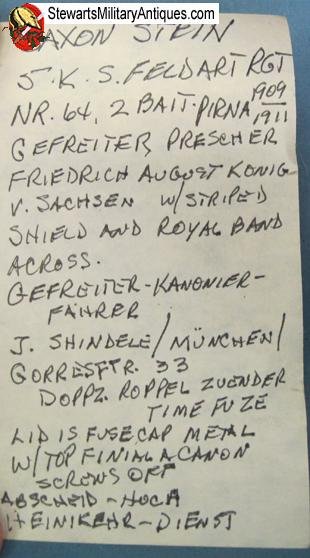 StewartsMilitaryAntiques.com
AXON STEIN
5.K.S.FELDART RGT
NR. 64, 2 BAIT. PIRNA 1909/1911
GEFREITER PRESCHER
FRIEDRICH AUGUST KONIG
V. SACHSEN W/STRIPED
SHIELD AND ROYAL BAND
ACROSS.
GEFREITER-KANONIER-
FAHRER
J. SHINDELE/MÜNCHEN/
GORRESFTR. 33
DOPPZ. ROPPEL ZUENDER
TIME FUZE
LID IS FUSE CAP METAL
W/TOP FINIAL A CANON
SCREWS OFF
ABSCHEID - HOCH
HEINIKEHR-DIENST